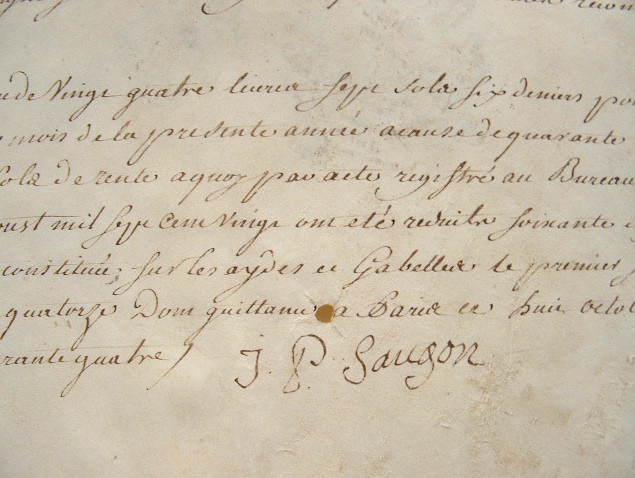 de Vingt quatre livres sept sols six deniers po
mois de la presente année acause de quarante
sols de rente aquoy par acte registré au Bureau
oust mil sept cent vingt ont été reduits soixante
constituée, sur les aydes et Gabelles le premier
quatorze Dont quittance a Paris ce huit octo
rante quatre J. P. Saugon